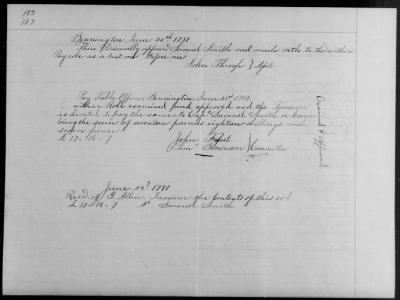 183
187
Bennington June 20th 1781
Then Personally appeard Samuel Smith and made oath to the within
Payrole as is just Before me
John Throop } Asst
Pay Table Office Bennington June 21st 1781
within Role examined and approved and the Treasurer
is directed to pay the same to Capt Samuel Smith or bearer
being the sum of seventeen pounds eighteen shillings and
seven pence
£17-18-7
John
Tim Brownson } Committee
Examined & Approved
June 23d 1781
Recd of I. Allen Treasurer the contents of this
£17-18-7 Samuel Smith